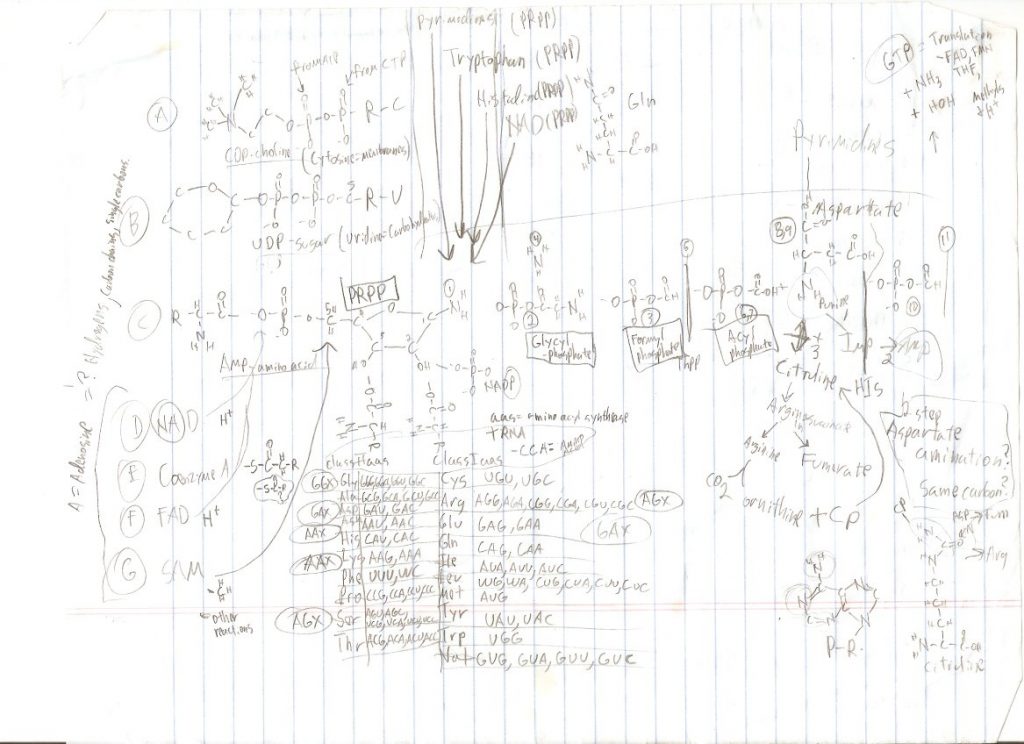 Pyrimidines (PRPP)
Tryptophan (PRPP)
Histidine (PRPP)
NAD (PRPP)
Gln
GTP = Translation
-FAD, FMN
THF,
+ NH3
+ HOH
Methyls
+ H+
from ATP
from CTP
A
CDP-choline (Cytosine=membranes)
B
UDP-sugar (Uridine=Carbohydrates)
C
AMP-amino acid
PRPP
NADP
1
4
2
Glycyl
-phosphate
3
Formyl
phosphate
5
TMPP
6,7
Acyl
phosphate
8,9
Pyrimidines
Aspartate
Purine
IMP → AMP
10
11
A = Adenosine = ? Hydrogens, Carbon chains, single carbons.
D NAD H+
E Coenzyme A
F FAD H+
G SAM
other
reactions
aas= amino acyl synthase
tRNA
-CCA=
Class II aas
Class I aas
GGX Gly GGG, GGA, GGU, GGC
Ala GCG, GCA, GCU, GCC
GAX Asp GAU, GAC
Asn AAU, AAC
AAX His CAU, CAC
AAX Lys AAG, AAA
Phe UUU, UUC
Pro CCG, CCA, CCU, CCC
AGX Ser AGU, AGC,
UCG, UCA, UCU, UCC
Thr ACG, ACA, ACU, ACC
Cys UGU, UGC
Arg AGG, AGA, CGG, CGA, CGU, CGC AGX
Glu GAG, GAA GAX
Gln CAG, CAA
Ile AUA, AUU, AUC
Leu UUG, UUA, CUG, CUA, CUU, CUC
Met AUG
Tyr UAU, UAC
Trp UGG
Val GUG, GUA, GUU, GUC
Citruline
His
Arginosuccinate
Arginine
Fumurate
CO2
ornithine + CP
2 step
Aspartate
amination?
Same carbon?
Asp → Fum
→ Arg
P-R
Citruline